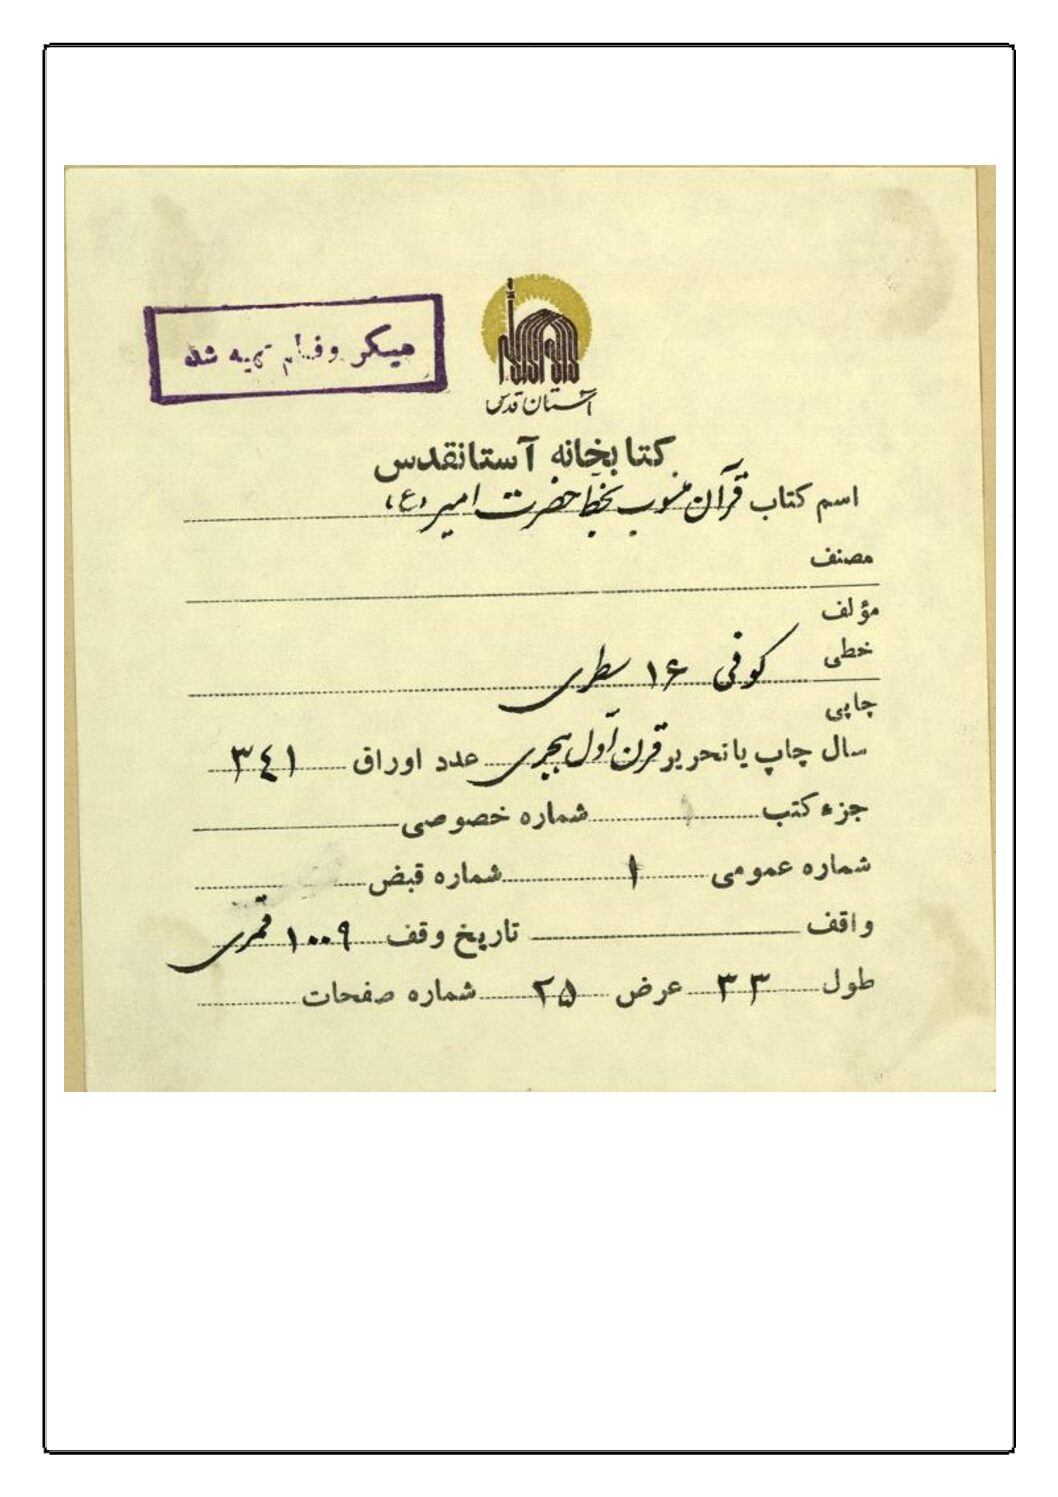 میکروفیلم تهیه شد
آستان قدس
کتابخانه آستانقدس
اسم کتاب قرآن منسوب بخط حضرت امیر (ع)
مصنف
مؤلف
خطی کوفی ۱۶ سطری
چاپی
سال چاپ یا تحریر قرن اول هجری عدد اوراق ۳٤۱
جزء کتب شماره خصوصی
شماره عمومی ۱ شماره قبض
واقف تاریخ وقف ۱۰۰۹ قمری
طول ۳۳ عرض ۲۵ شماره صفحات